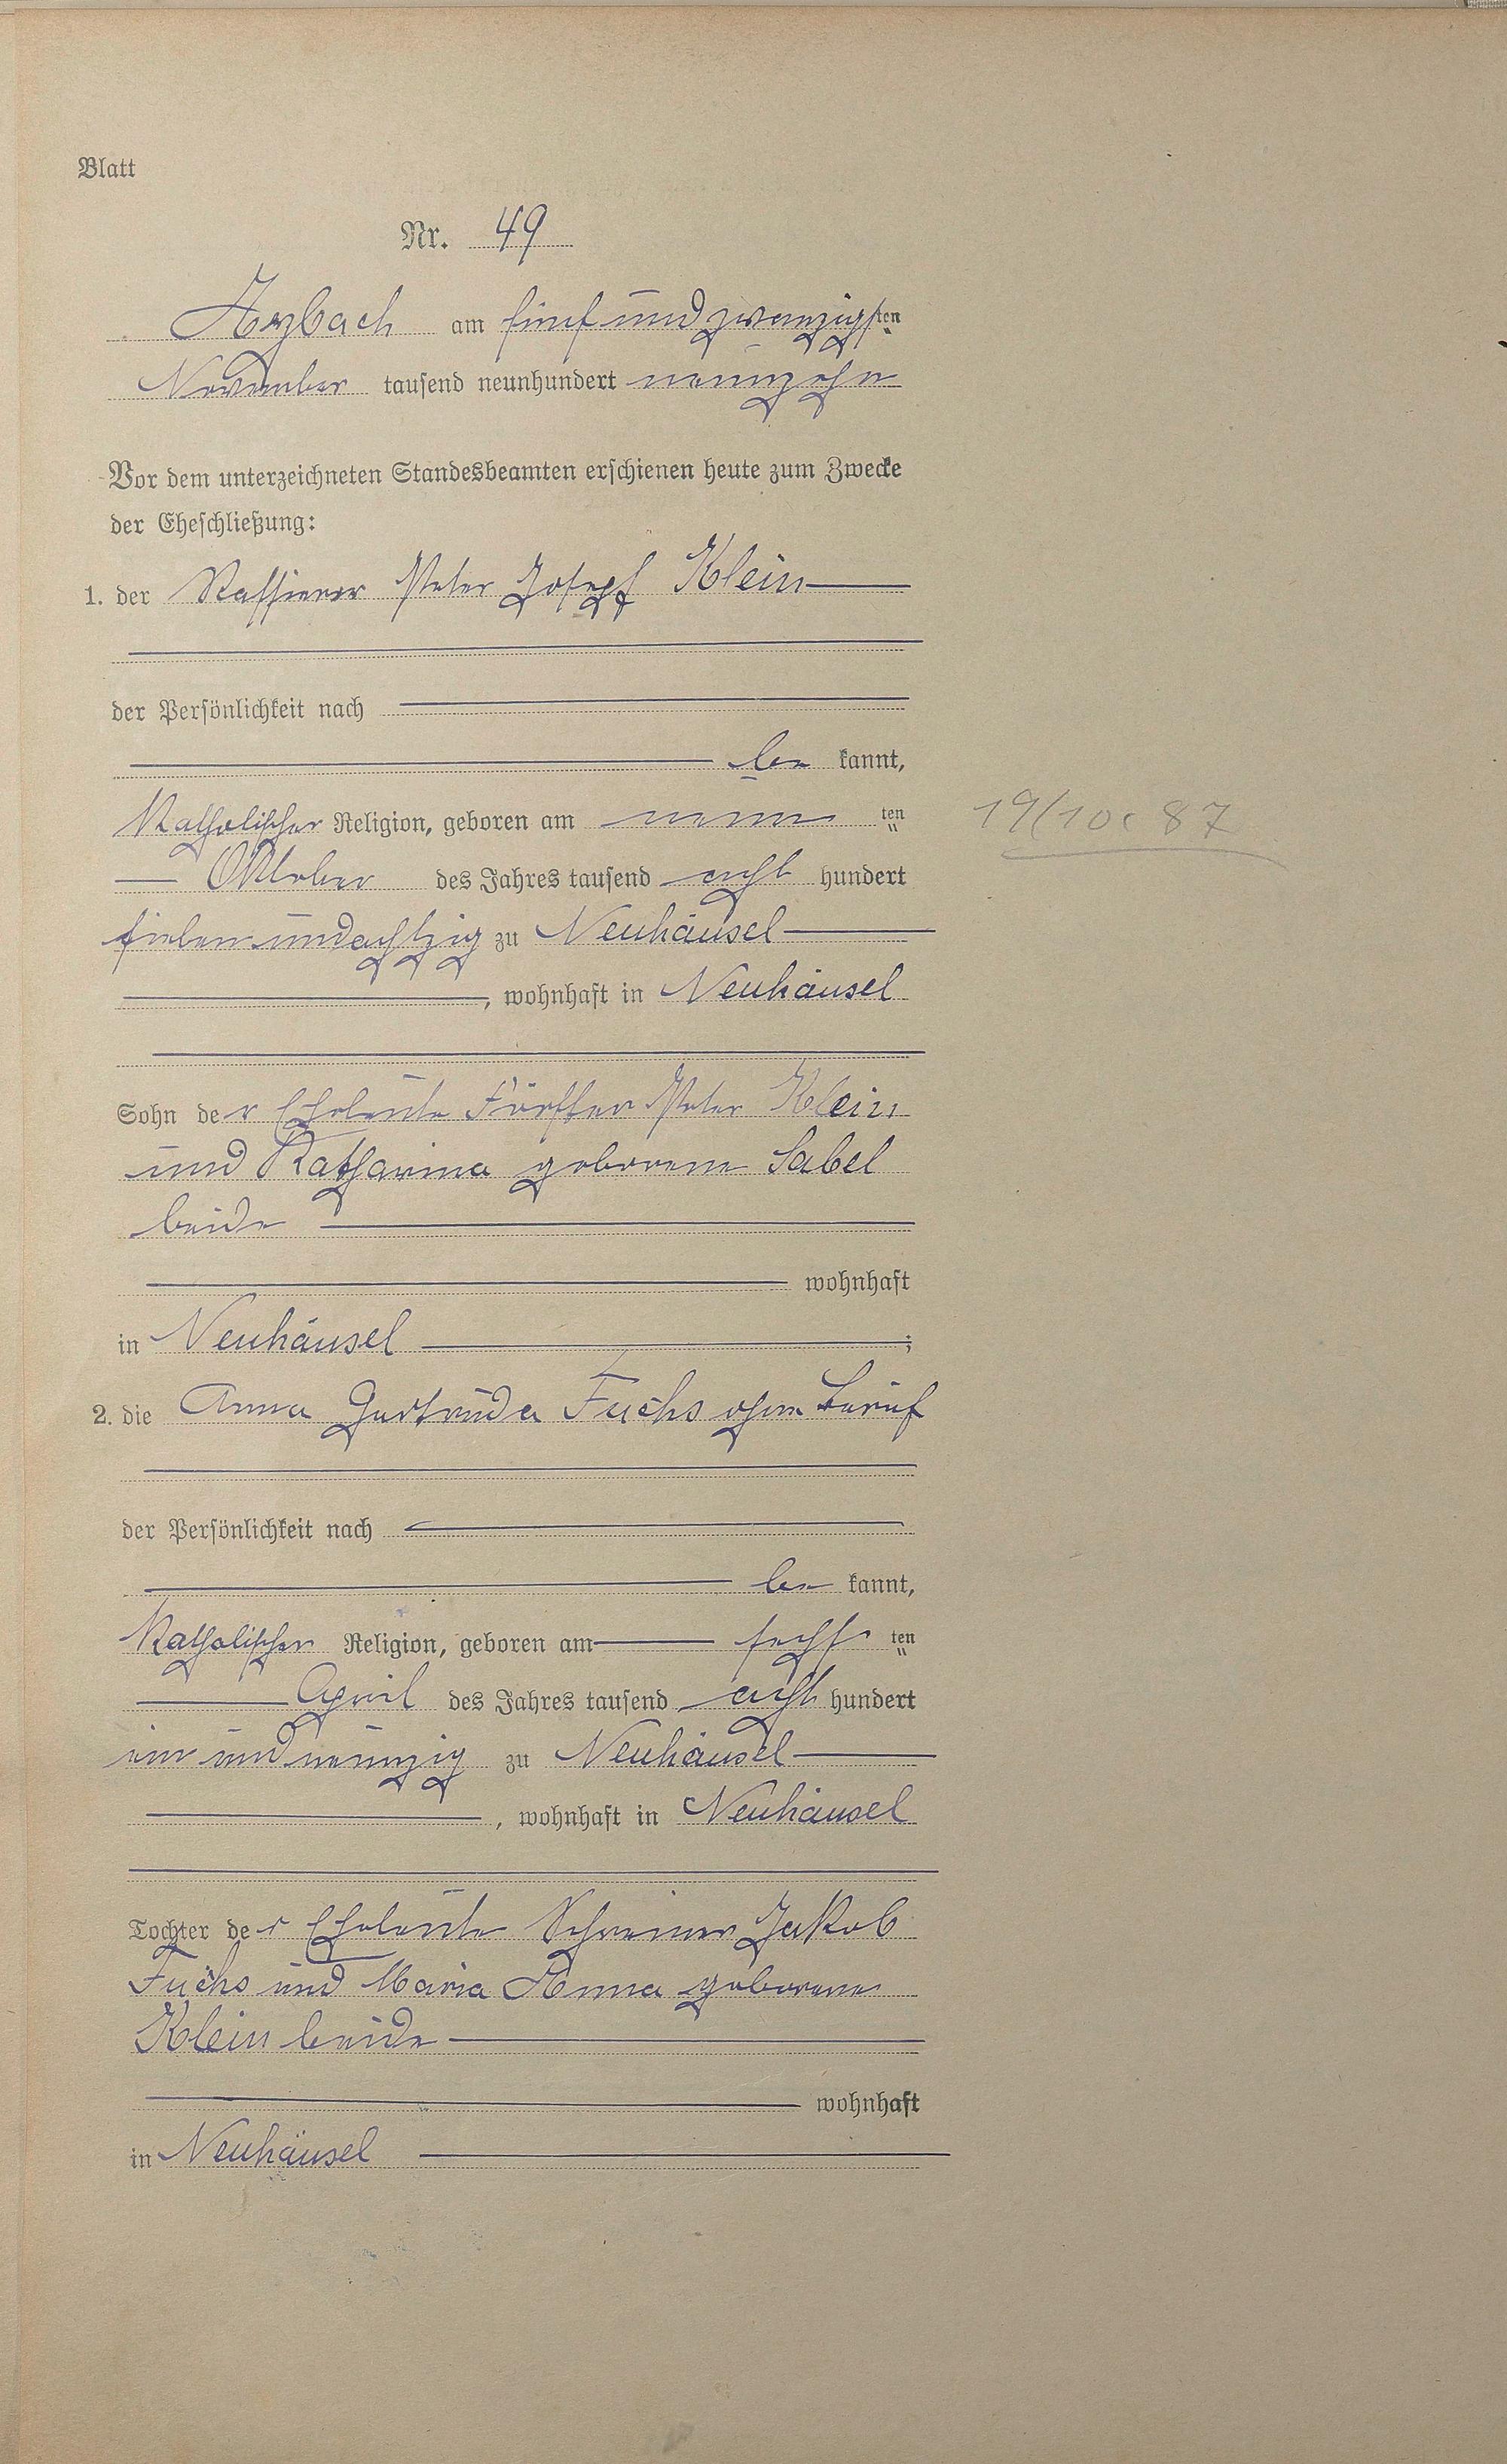 Blatt
Nr. 49
Arzbach am fünfundzwanzigsten
November tausend neunhundert neunzehn
Vor dem unterzeichneten Standesbeamten erschienen heute zum Zwecke
der Eheschließung:
1. der Kassierer Peter Josepf Klein
der Persönlichkeit nach
be kannt,
Katholischer Religion, geboren am neun ten
Oktober des Jahres tausend acht hundert
siebenundachtzig zu Neuhäusel
, wohnhaft in Neuhäusel
Sohn der Eheleute Förster Peter Klein
und Katharina geborene Sabel
beide
wohnhaft
in Neuhäusel ;
2. die Anna Gertruda Fuchs ohne Beruf
der Persönlichkeit nach
be kannt,
Katholischer Religion, geboren am sechs ten
April des Jahres tausend acht hundert
ein und neunzig zu Neuhäusel
, wohnhaft in Neuhäusel
Tochter der Eheleute Schreiner Jakob
Fuchs und Maria Anna geborene
Klein beide
wohnhaft
in Neuhäusel
19/10. 87